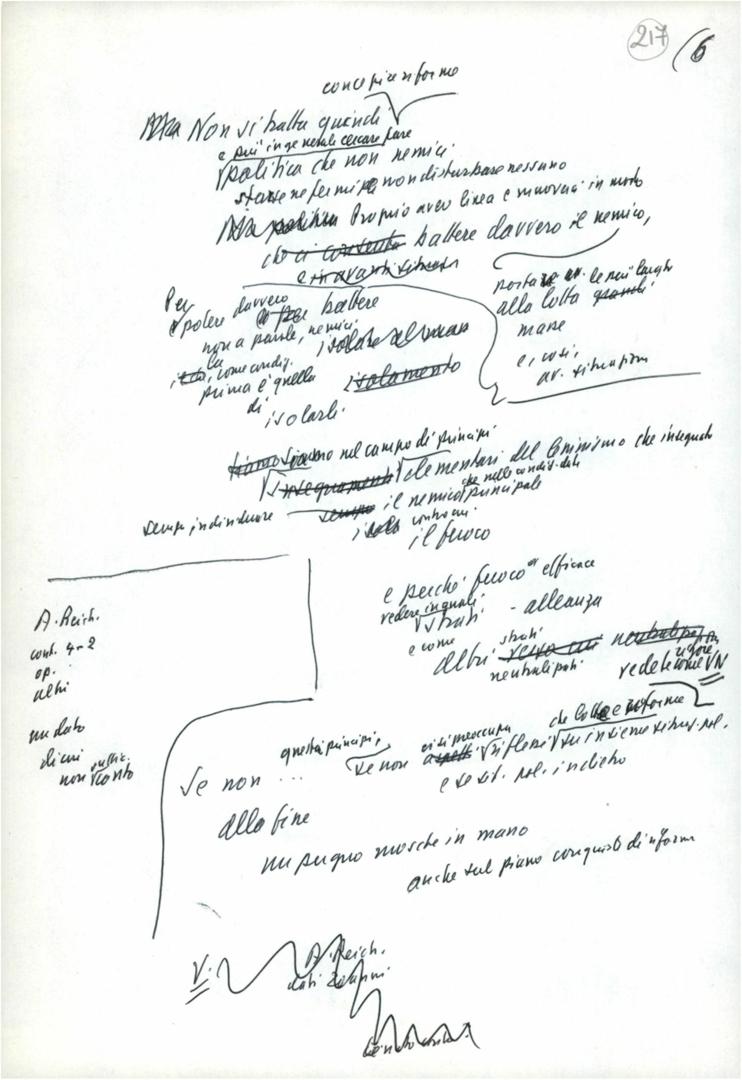 217 (6
concepire riforme
Ma Non si batta quindi
e più in generale cercare fare
politica che non nemici
starsene fermi e non disturbare nessuno
Ma politica Proprio aver linea e muoversi in modo
che ci consenta battere davvero il nemico,
e mandare avanti situaz
portare av. le più larghe
alla lotta grandi
masse
e, così,
av. situazion
Per
e potere davvero
e per battere
non a parole, nemici
la
come condiz.
prima è quella
di
isolarli
isolamento
siamo nel campo di principi
insegnamenti elementari del leninismo che insegnato
sempre individuare sempre il nemico principale
che nelle condiz. date
contro cui
il fuoco
e perché fuoco efficace
vedere in quali
strati - alleanza
e come
altri strati
neutralizzati
vedete come VN
A. Reich.
cont. 4-2
op.
altri
me dato
di cui
non conto
Se non questi principi,
...
se non ci si preoccupa
che lotte e riforme
riflessi su insieme situaz. pol.
e se sit. pol. indietro
alla fine
un pugno mosche in mano
anche sul piano conquista di riforma
V. A. Reich.
dati